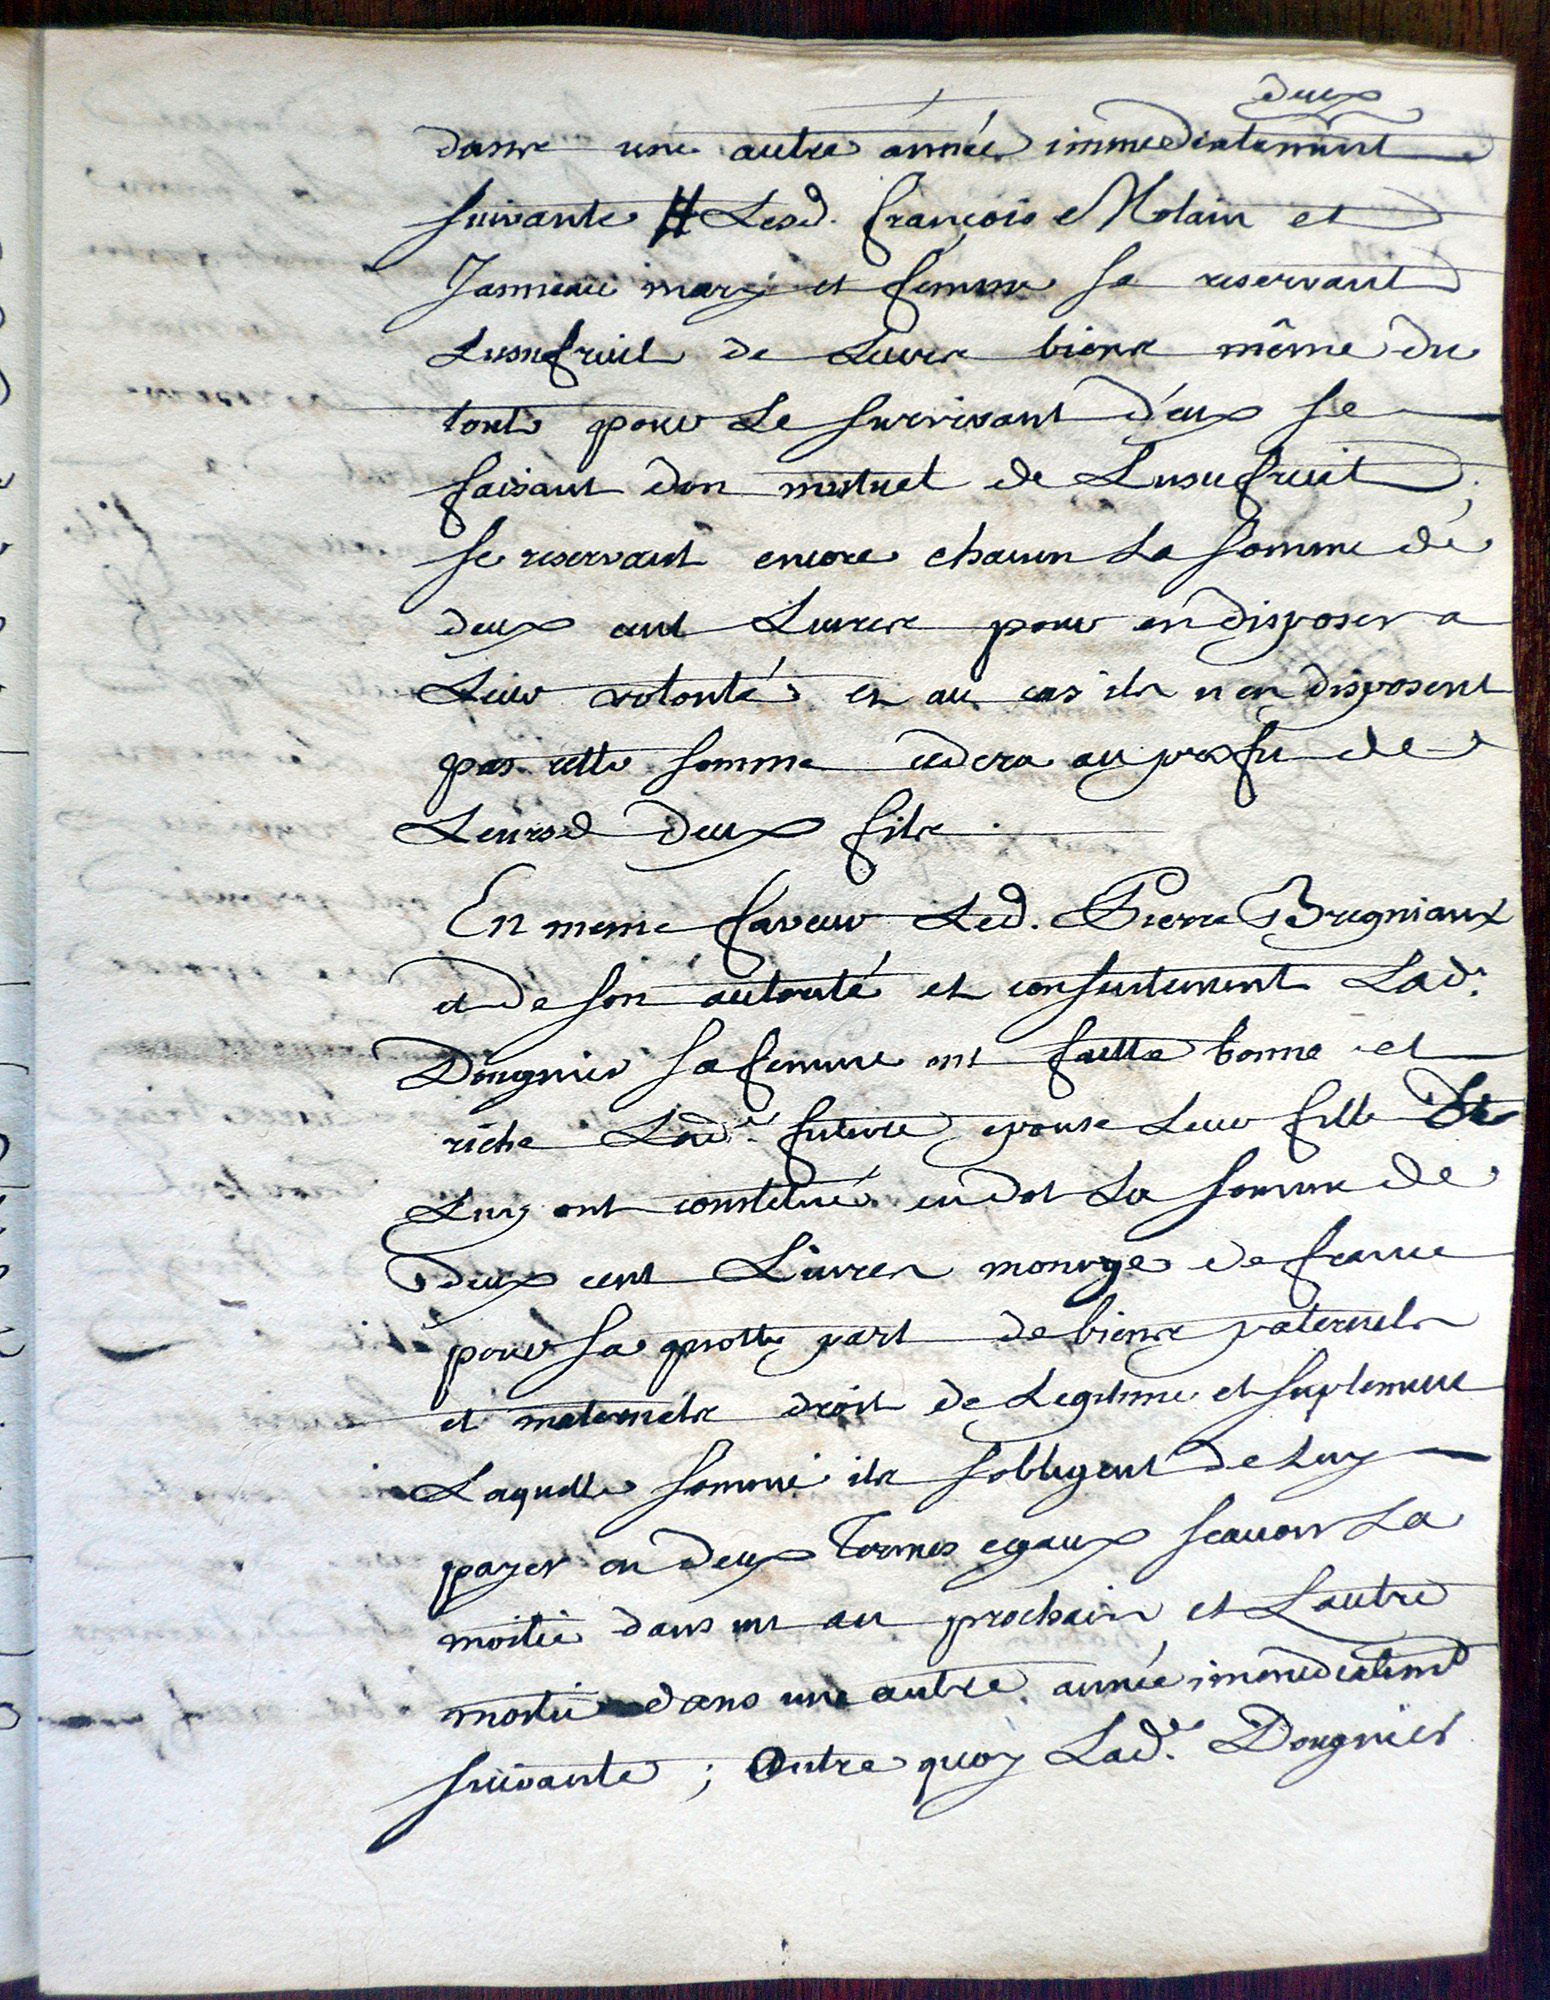 deux
dans une autre année immediatement
suivante # Lesd. françois Molain et
Janneau mary et femme se reservant
Lusufruit de Leurs biens même du
tout pour Le survivant d'eux se
faisant don mutuel de Lusufruit ;
se reservant encore chacun La somme de
deux cent Livres pour en disposer a
Leur volonté et au cas ils n en disposent
pas cette somme cedera au profit de
Leursd deux fils .
En meme faveur Led. Pierre Bregniaux
et de son autorité et consentement Lad.e
Dougnier sa femme ont faitte bonne et
riche Lad.e future epouse Leur fille
Luy ont constitué en dot La somme de
deux cent Livres monoye de france
pour sa quotte part de biens paternels
et maternels droit de Legitime et suplement
Laquelle somme ils sobligent de Luy
payer en deux Termes egaux scavoir La
moitié dans un an prochain et Lautre
moitié dans une autre année immediatemt
suivante ; Outre quoy Lad.e Dougnier